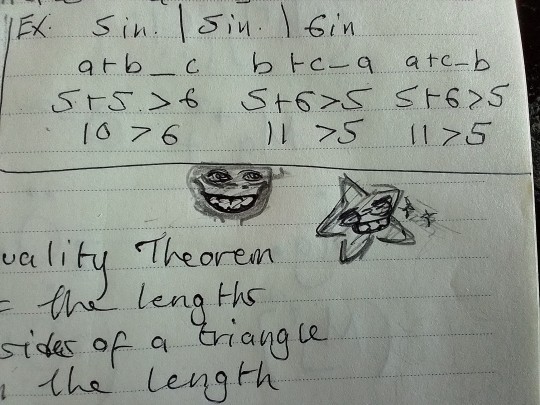 EX. 5in. | 5in. | 6in
a+b _ c b+c-a a+c-b
5+5.>6 5+6>5 5+6>5
10 >6 11 >5 11>5
uality Theorem
= the lengths
sides of a triangle
the length